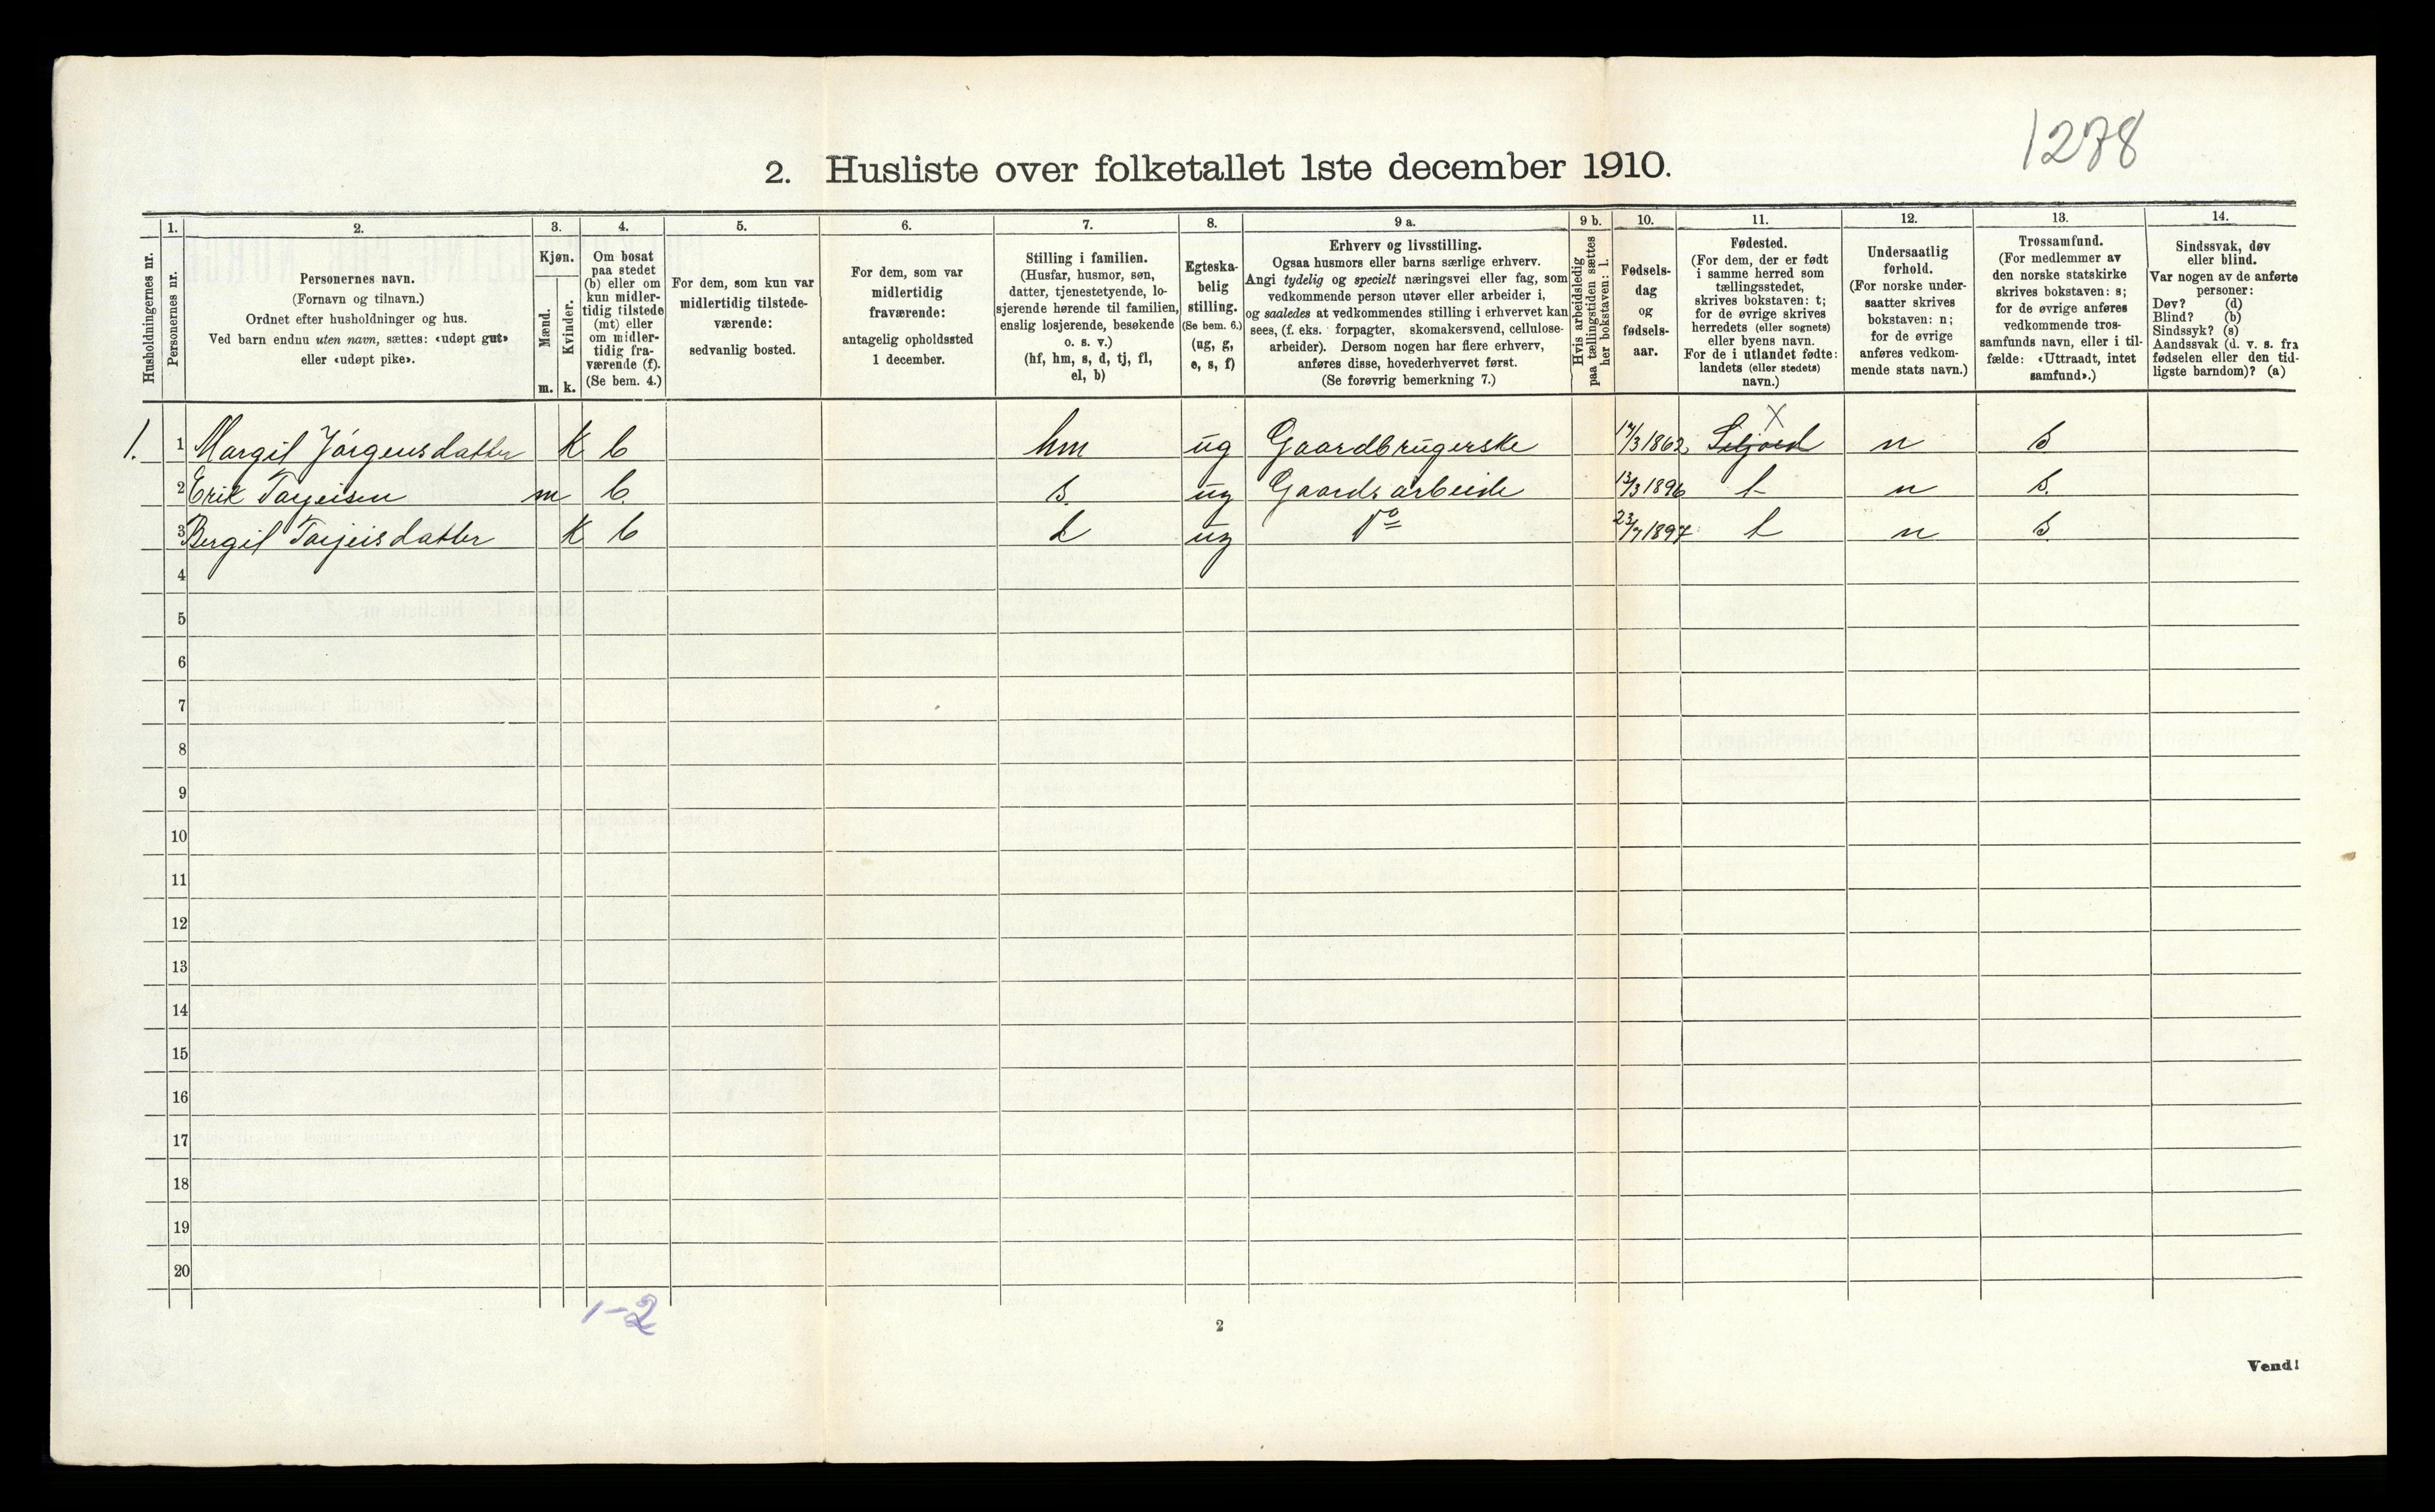 1278
2. Husliste over folketallet 1ste december 1910.
Husholdningernes nr.
1.
Personernes nr.
2.
Personernes navn.
(Fornavn og tilnavn.)
Ordnet efter husholdninger og hus.
Ved barn endnu uten navn, sættes: «udøpt gut»
eller «udøpt pike».
3.
Kjøn.
Mænd.
m.
Kvinder.
k.
4.
Om bosat
paa stedet
(b) eller om
kun midler-
tidig tilstede
(mt) eller
om midler-
tidig fra-
værende (f).
(Se bem. 4.)
5.
For dem, som kun var
midlertidig tilstede-
værende:
sedvanlig bosted.
6.
For dem, som var
midlertidig
fraværende:
antagelig opholdssted
1 december.
7.
Stilling i familien.
(Husfar, husmor, søn,
datter, tjenestetyende, lo-
sjerende hørende til familien,
enslig losjerende, besøkende
o. s. v.)
(hf, hm, s, d, tj, fl,
el, b)
8.
Egteska-
belig
stilling.
(Se bem. 6.)
(ug, g,
e, s, f)
9 a.
Erhverv og livsstilling.
Ogsaa husmors eller barns særlige erhverv.
Angi tydelig og specielt næringsvei eller fag, som
vedkommende person utøver eller arbeider i,
og saaledes at vedkommendes stilling i erhvervet kan
sees, (f. eks. forpagter, skomakersvend, cellulose-
arbeider). Dersom nogen har flere erhverv,
anføres disse, hovederhvervet først.
(Se forøvrig bemerkning 7.)
9 b.
Hvis arbeidsledig
paa tællingstiden sættes
her bokstaven: l.
10.
Fødsels-
dag
og
fødsels-
aar.
11.
Fødested.
(For dem, der er født
i samme herred som
tællingsstedet,
skrives bokstaven: t;
for de øvrige skrives
herredets (eller sognets)
eller byens navn.
For de i utlandet fødte:
landets (eller stedets)
navn.)
12.
Undersaatlig
forhold.
(For norske under-
saatter skrives
bokstaven: n;
for de øvrige
anføres vedkom-
mende stats navn.)
13.
Trossamfund.
(For medlemmer av
den norske statskirke
skrives bokstaven: s;
for de øvrige anføres
vedkommende tros-
samfunds navn, eller i til-
fælde: «Uttraadt, intet
samfund».)
14.
Sindssvak, døv
eller blind.
Var nogen av de anførte
personer:
Døv? (d)
Blind? (b)
Sindssyk? (s)
Aandssvak (d. v. s. fra
fødselen eller den tid-
ligste barndom)? (a)
X
1. 1 Margit Jørgensdatter K b hm ug Gaardbrugerske 17/3 1862 Seljord n s
2 Erik Torjeisen m b. s. ug Gaardsarbeide 13/3 1896 t n s.
3 Bergit Torjeisdatter K b d ug Do 23/7 1897 t n s.
4
5
6
7
8
9
10
11
12
13
14
15
16
17
18
19
20
1-2
2
Vend!